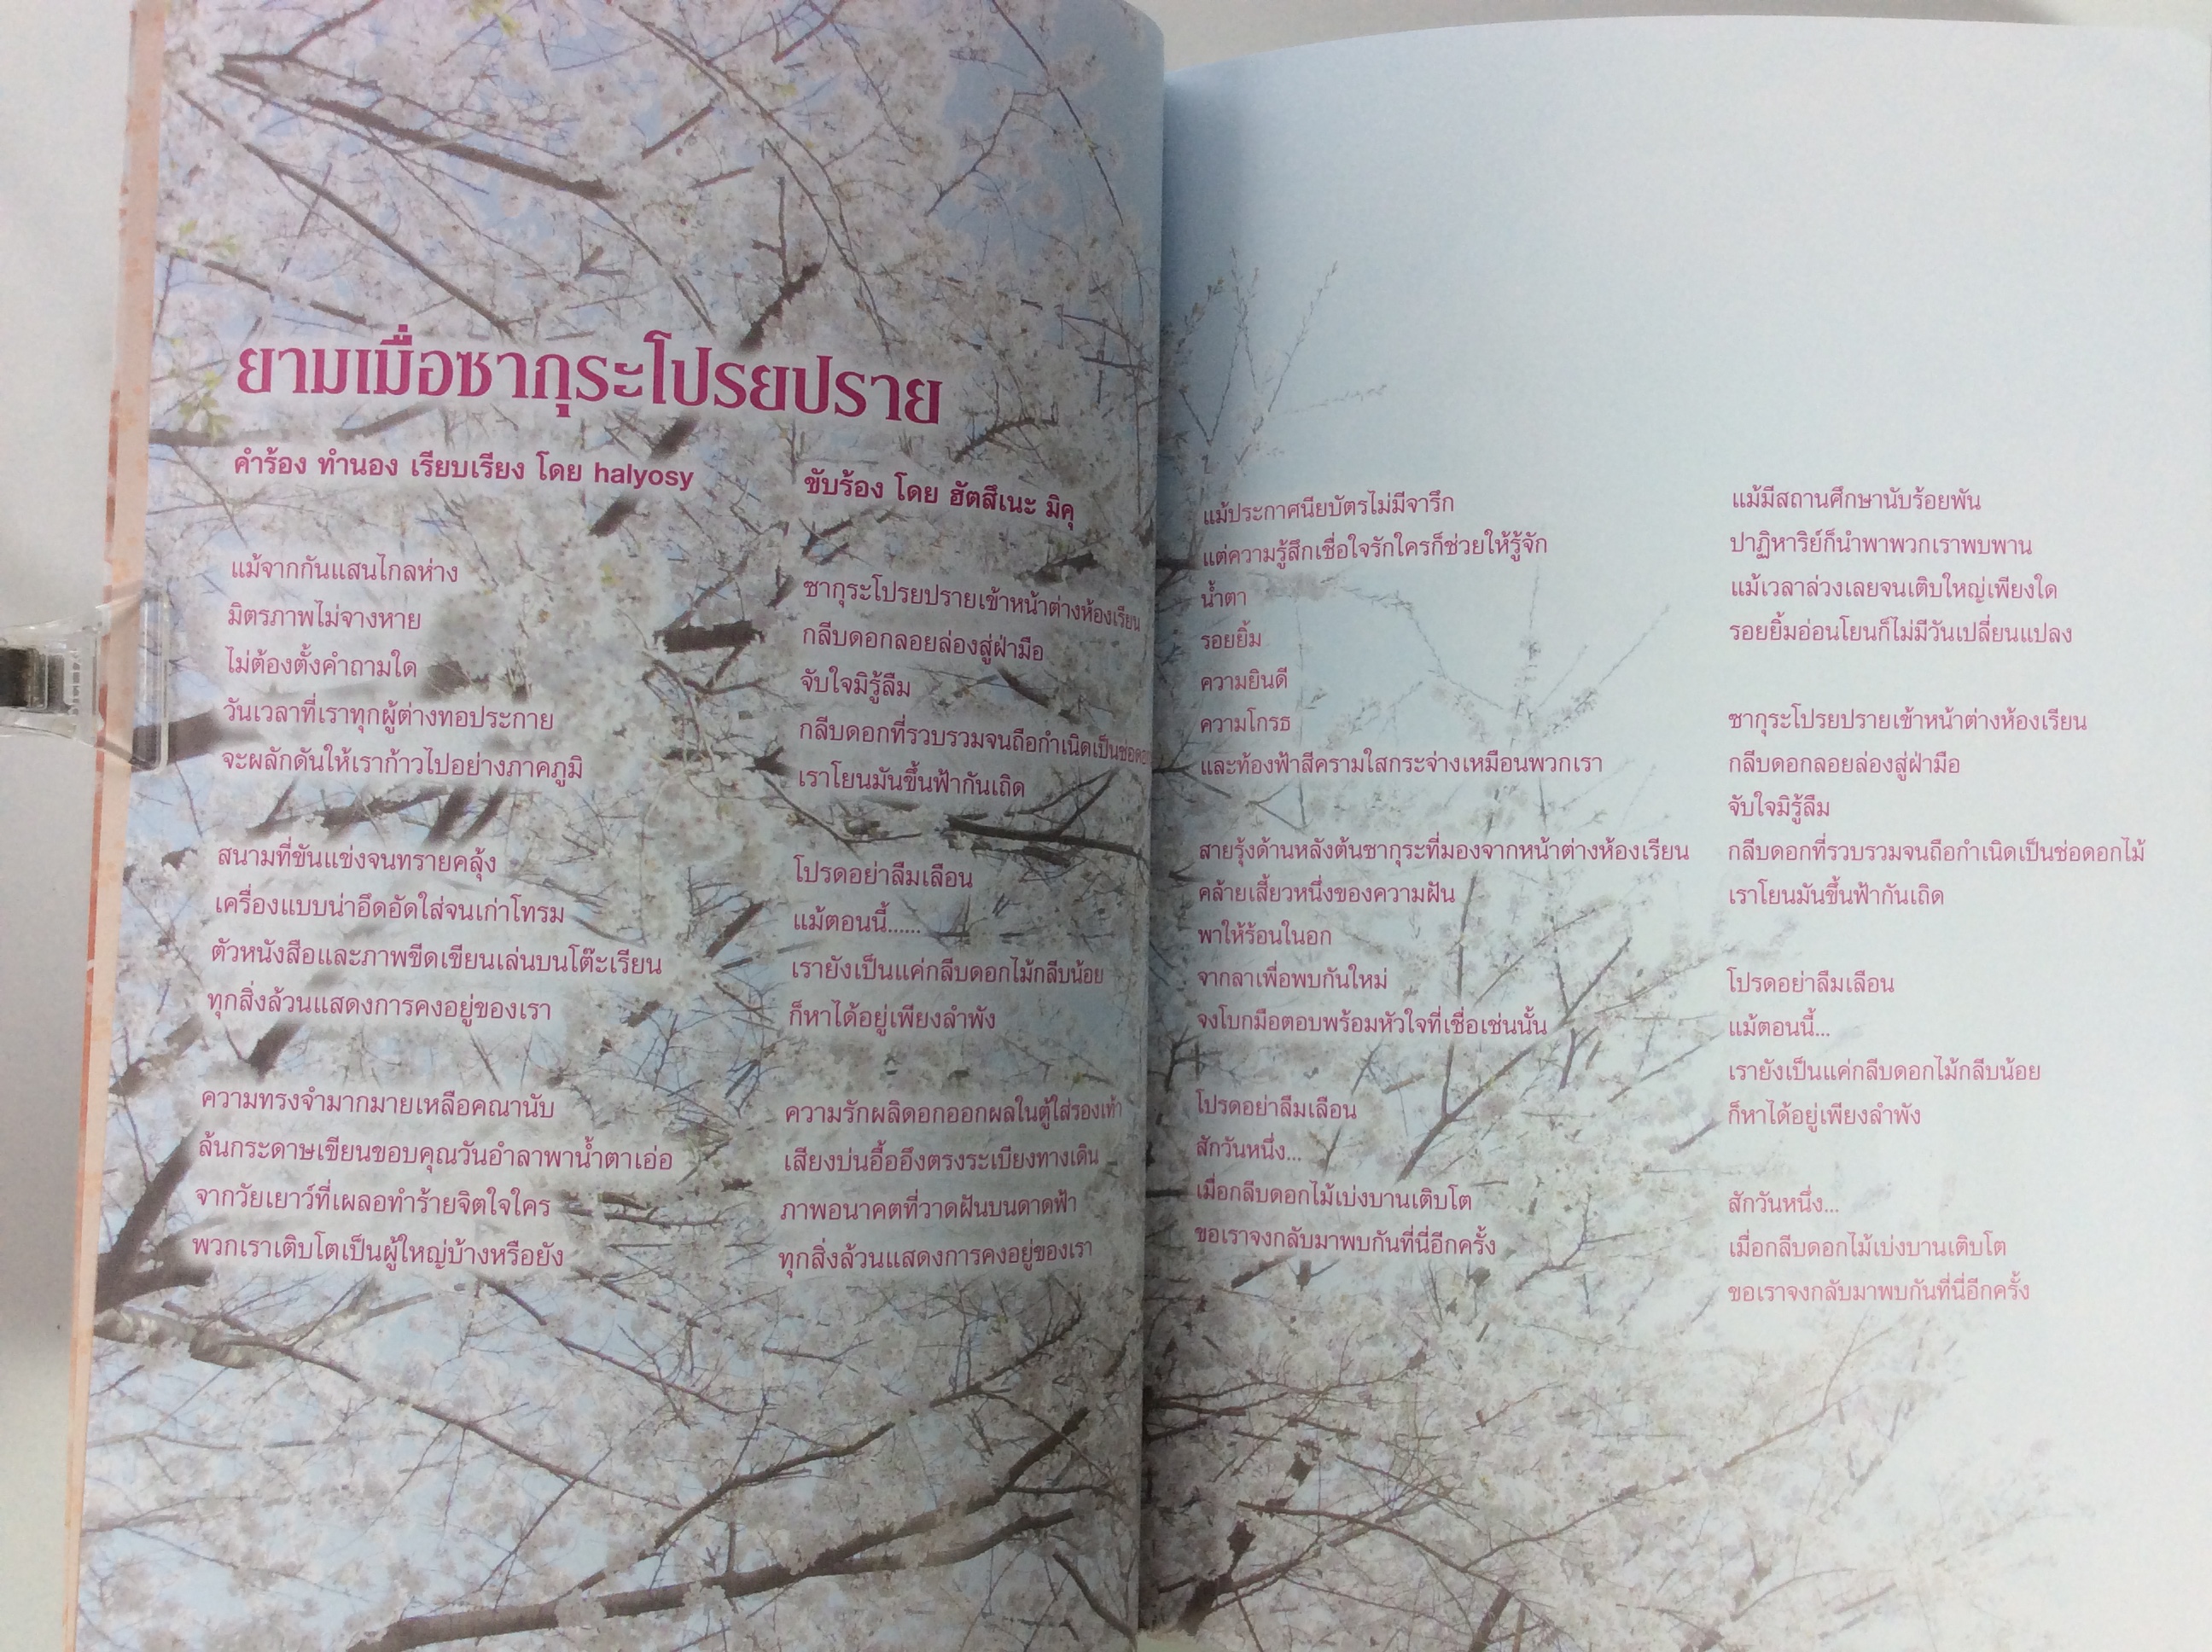 ยามเมื่อซากุระโปรยปราย
คำร้อง ทำนอง เรียบเรียง โดย halyosy
ขับร้อง โดย ฮัตสึเนะ มิคุ
แม้จากกันแสนไกลห่าง
มิตรภาพไม่จางหาย
ไม่ต้องตั้งคำถามใด
วันเวลาที่เราทุกผู้ต่างทอประกาย
จะผลักดันให้เราก้าวไปอย่างภาคภูมิ
สนามที่ขันแข่งจนทรายคลุ้ง
เครื่องแบบน่าอึดอัดใส่จนเก่าโทรม
ตัวหนังสือและภาพขีดเขียนเล่นบนโต๊ะเรียน
ทุกสิ่งล้วนแสดงการคงอยู่ของเรา
ความทรงจำมากมายเหลือคณานับ
ล้นกระดาษเขียนขอบคุณวันอำลาพาน้ำตาเอ่อ
จากวัยเยาว์ที่เผลอทำร้ายจิตใจใคร
พวกเราเติบโตเป็นผู้ใหญ่บ้างหรือยัง
ซากุระโปรยปรายเข้าหน้าต่างห้องเรียน
กลีบดอกลอยล่องสู่ฝ่ามือ
จับใจมิรู้ลืม
กลีบดอกที่รวบรวมจนถือกำเนิดเป็นช่อ
เราโยนมันขึ้นฟ้ากันเถิด
โปรดอย่าลืมเลือน
แม้ตอนนี้......
เรายังเป็นแค่กลีบดอกไม้กลีบน้อย
ก็หาได้อยู่เพียงลำพัง
ความรักผลิดอกออกผลในตู้ใส่รองเท้า
เสียงบ่นอื้ออึงตรงระเบียงทางเดิน
ภาพอนาคตที่วาดฝันบนดาดฟ้า
ทุกสิ่งล้วนแสดงการคงอยู่ของเรา
แม้ประกาศนียบัตรไม่มีจารึก
แต่ความรู้สึกเชื่อใจรักใครก็ช่วยให้รู้จัก
น้ำตา
รอยยิ้ม
ความยินดี
ความโกรธ
และท้องฟ้าสีครามใสกระจ่างเหมือนพวกเรา
สายรุ้งด้านหลังต้นซากุระที่มองจากหน้าต่างห้องเรียน
คล้ายเสี้ยวหนึ่งของความฝัน
พาให้ร้อนในอก
จากลาเพื่อพบกันใหม่
จงโบกมือตอบพร้อมหัวใจที่เชื่อเช่นนั้น
โปรดอย่าลืมเลือน
สักวันหนึ่ง...
เมื่อกลีบดอกไม้เบ่งบานเติบโต
ขอเราจงกลับมาพบกันที่นี่อีกครั้ง
แม้มีสถานศึกษานับร้อยพัน
ปาฏิหาริย์ก็นำพาพวกเราพบพาน
แม้เวลาล่วงเลยจนเติบใหญ่เพียงใด
รอยยิ้มอ่อนโยนก็ไม่มีวันเปลี่ยนแปลง
ซากุระโปรยปรายเข้าหน้าต่างห้องเรียน
กลีบดอกลอยล่องสู่ฝ่ามือ
จับใจมิรู้ลืม
กลีบดอกที่รวบรวมจนถือกำเนิดเป็นช่อดอกไม้
เราโยนมันขึ้นฟ้ากันเถิด
โปรดอย่าลืมเลือน
แม้ตอนนี้...
เรายังเป็นแค่กลีบดอกไม้กลีบน้อย
ก็หาได้อยู่เพียงลำพัง
สักวันหนึ่ง...
เมื่อกลีบดอกไม้เบ่งบานเติบโต
ขอเราจงกลับมาพบกันที่นี่อีกครั้ง